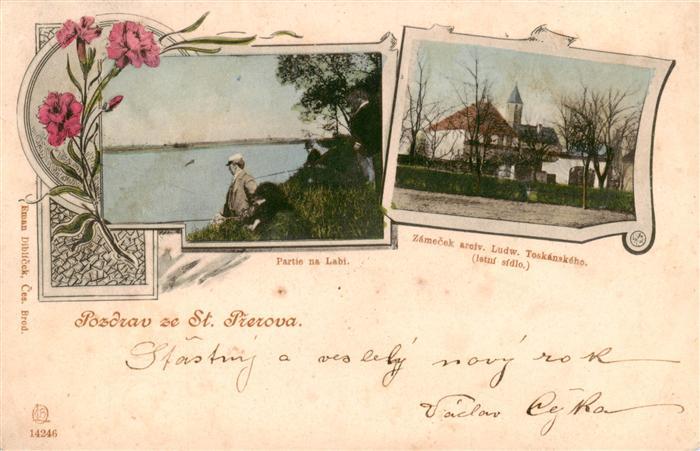 Partie na Labi.
Zámeček arciv. Ludw. Toskánského.
(letní sídlo.)
Eman Diblíček, Čes. Brod.
Pozdrav ze St. Přerova.
Šťastný a veselý nový rok
Václav Cýka
14246